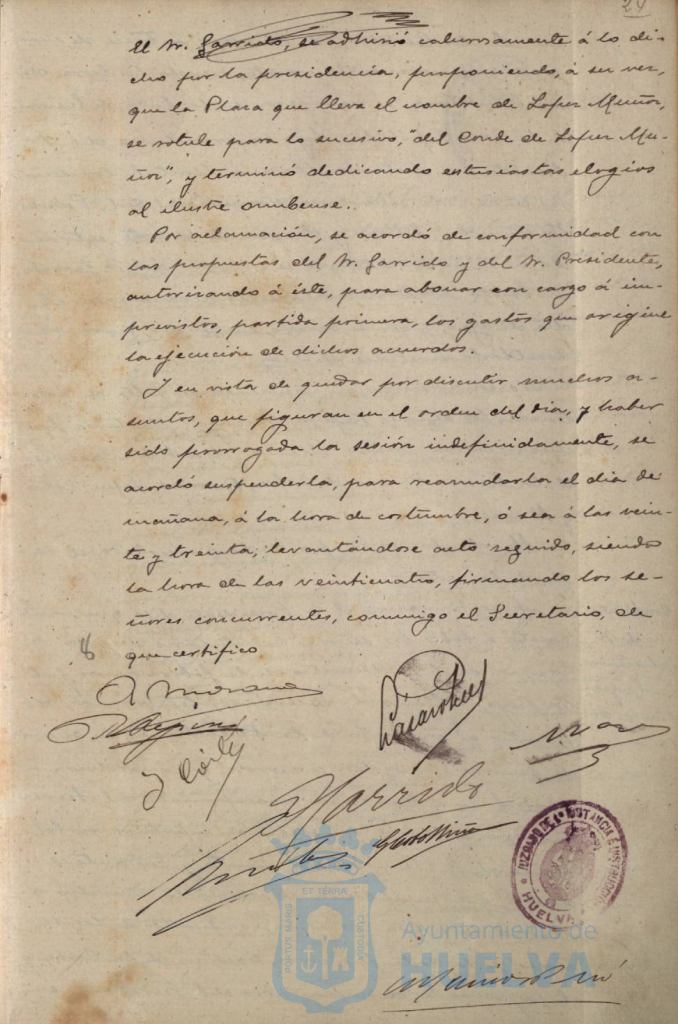 24
El Sr. Garrido, se adhirió calurosamente á lo di-
cho por la presidencia, proponiendo, á su vez,
que la Plaza que lleva el nombre de Lopez Muñoz,
se rotule para lo sucesivo, "del Conde de Lopez Mu-
ñoz", y terminó dedicando entusiastas elogios
al ilustre onubense.
Por aclamación, se acordó de conformidad con
las propuestas del Sr. Garrido y del Sr. Presidente,
autorizando á éste, para abonar con cargo á im-
previstos, partida primera, los gastos que origine
la ejecución de dichos acuerdos.
Y en vista de quedar por discutir muchos a-
suntos, que figuran en el orden del dia, y haber
sido prorrogada la sesión indefinidamente, se
acordó suspenderla, para reanudarla el dia de
mañana, á la hora de costumbre, ó sea á las vein-
te y treinta, levantándose acto seguido, siendo
la hora de las veinticuatro, firmando los se-
ñores concurrentes, conmigo el Secretario, de
que certifico
8
Garrido
JUZGADO DE 1ª INSTANCIA E INSTRUCCION
HUELVA
PORTUS MARIS ET TERRÆ CUSTODIA
Ayuntamiento de
HUELVA